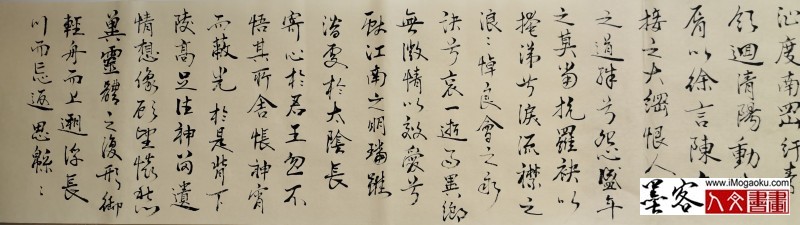 沚度南岡紆素
領迴清陽動
脣以徐言陳
接之大綱恨人
之道殊兮怨盛年
之莫當抗羅袂以
掩涕兮淚流襟之
浪〻悼良會之永
訣兮哀一逝而異鄉
無微情以效愛兮
獻江南之明璫雖
潛處於太陰長
寄心於君王忽不
悟其所舍悵神宵
而蔽光於是背下
陵高足往神留遺
情想像顧望懷愁
冀靈體之復形御
輕舟而上遡浮長
川而忘返思綿〻
墨客
www.iMogaoku.com
人文書畫